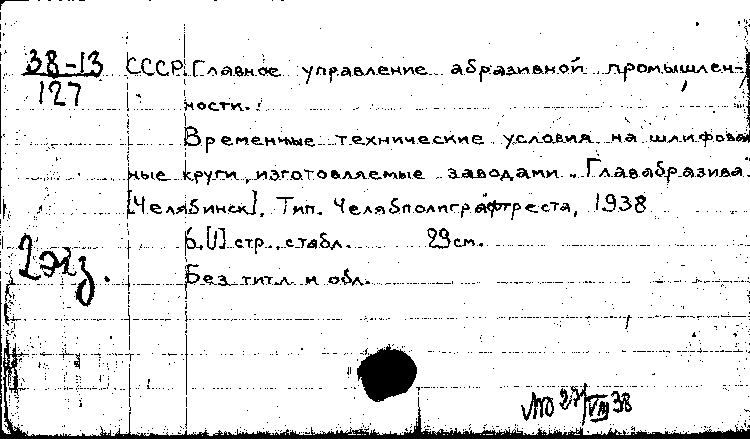 38-13
127
СССР. Главное управление абразивной промышлен-
ности.
Временные технические условия на шлифоваль
ные круги, изготовляемые заводами Главабразива.
[Челябинск], Тип. Челябполиграфтреста, 1938
6,[1] стр., с табл. 29 см.
2 экз.
Без титл и обл.
27/VIII 38